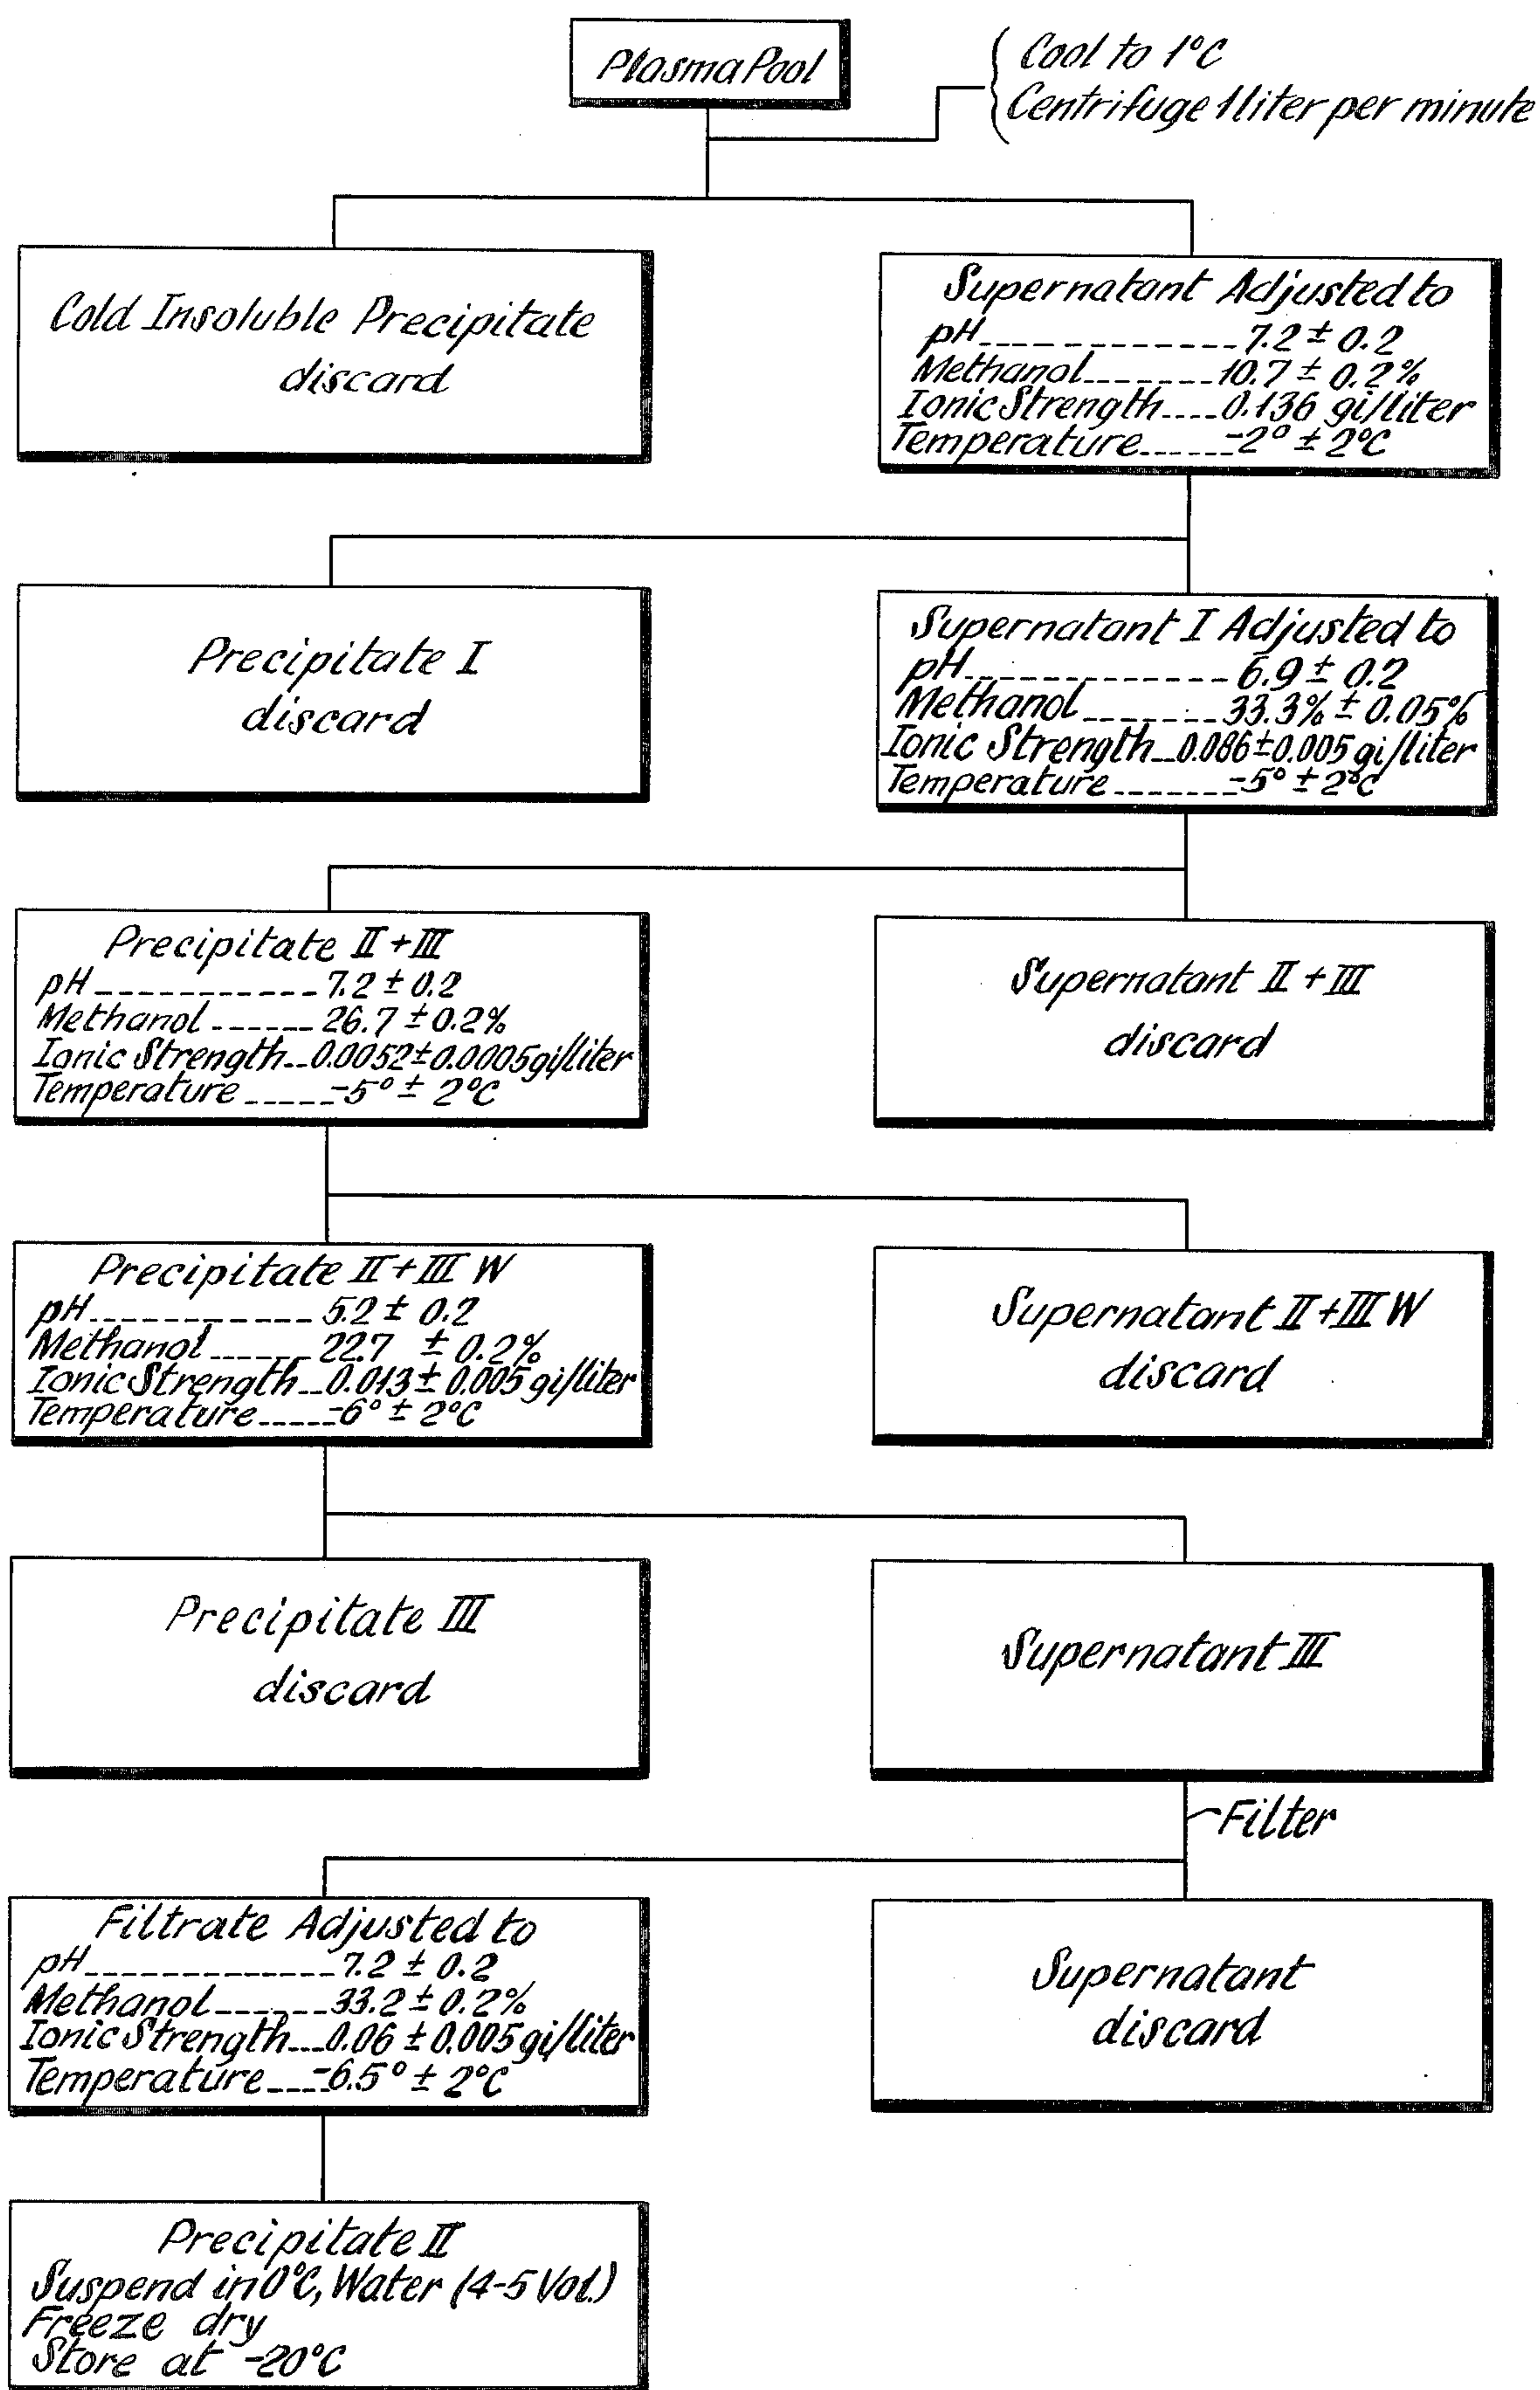 Plasma Pool
Cool to 1°C
Centrifuge 1 liter per minute
Cold Insoluble Precipitate
discard
Supernatant Adjusted to
pH-------------7.2 ± 0.2
Methanol-------10.7 ± 0.2%
Ionic Strength----0.136 gi/liter
Temperature------ -2° ± 2°C
Precipitate I
discard
Supernatant I Adjusted to
pH-------------6.9 ± 0.2
Methanol-------33.3% ± 0.05%
Ionic Strength--0.086±0.005 gi/liter
Temperature------- -5° ± 2°C
Precipitate II+III
pH-----------7.2 ± 0.2
Methanol------26.7 ±0.2%
Ionic Strength--0.0052±0.0005gi/liter
Temperature----- -5° ± 2°C
Supernatant II+III
discard
Precipitate II+III W
pH-----------5.2 ± 0.2
Methanol------22.7 ± 0.2%
Ionic Strength--0.013 ± 0.005 gi/liter
Temperature----- -6° ± 2°C
Supernatant II+III W
discard
Precipitate III
discard
Supernatant III
Filter
Filtrate Adjusted to
pH-------------7.2 ± 0.2
Methanol------33.2 ± 0.2%
Ionic Strength---0.06 ± 0.005 gi/liter
Temperature---- -6.5° ± 2°C
Supernatant
discard
Precipitate II
Suspend in 0°C, Water (4-5 Vol.)
Freeze dry
Store at -20°C